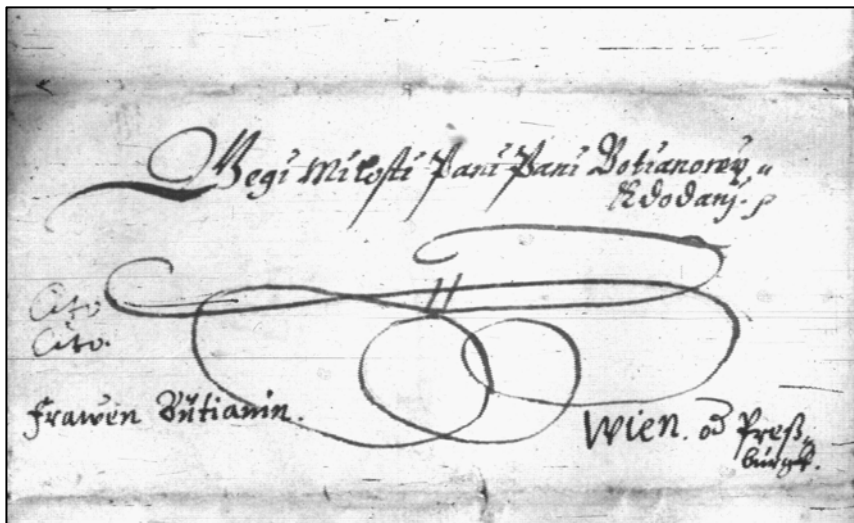 Gegi Milosti Pani Pani Botianowy
K dodanj.
Cito
Cito.
Frawen Butianin.
Wien. od Preß-
burgk.